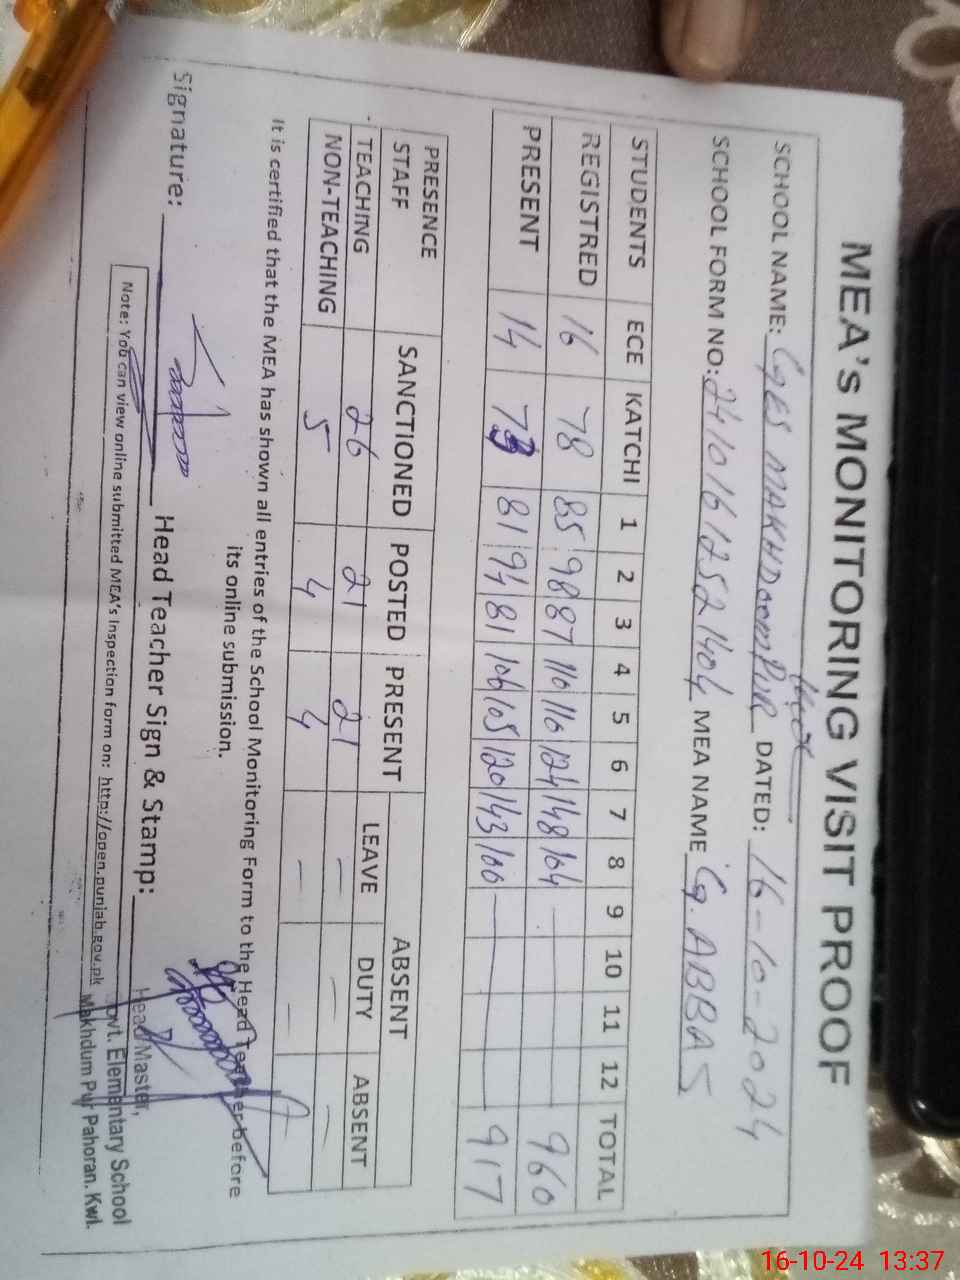 MEA's MONITORING VISIT PROOF
SCHOOL NAME: GES MAKHDOOMPUR DATED: 16-10-2024
SCHOOL FORM NO: 24101612521404 MEA NAME G. ABBAS
STUDENTS ECE KATCHI 1 2 3 4 5 6 7 8 9 10 11 12 TOTAL
REGISTRED 16 78 85 98 87 110 110 124 148 104 960
PRESENT 14 73 81 94 81 106 105 120 143 100 917
PRESENCE SANCTIONED POSTED PRESENT ABSENT
STAFF LEAVE DUTY ABSENT
TEACHING 26 21 21 — — —
NON-TEACHING 5 4 4 — —
It is certified that the MEA has shown all entries of the School Monitoring Form to the Head Teacher before
its online submission.
Signature: Head Teacher Sign & Stamp:
Head Master,
Govt. Elementary School
Makhdum Pur Pahoran. Kwl.
Note: You can view online submitted MEA's Inspection form on: http://open.punjab.gov.pk
16-10-24 13:37